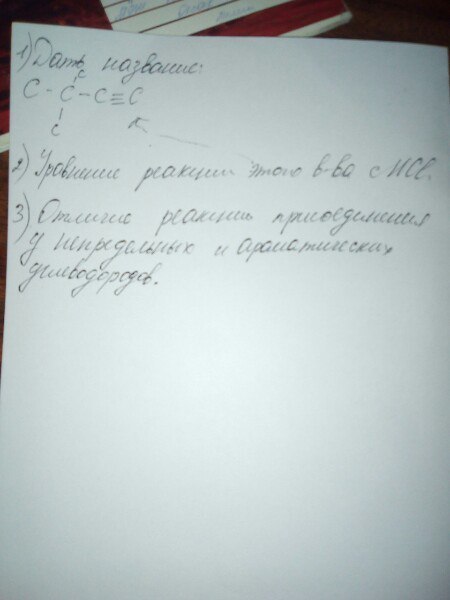 1) Дать название:
C
C - C - C ≡ C
C
2) Уравнение реакции этого в-ва с HCl.
3) Отличие реакции присоединения
у непредельных и ароматических
углеводородов.